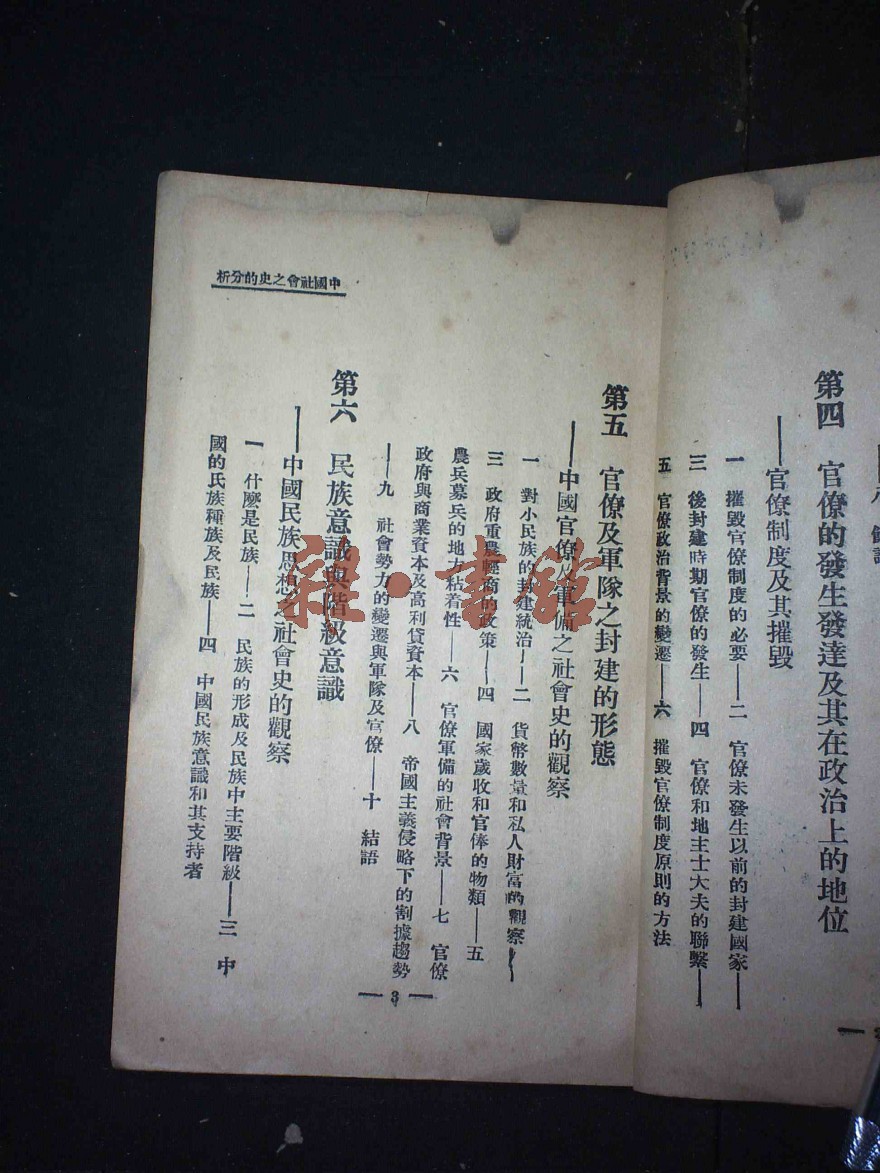 第四　官僚的發生發達及其在政治上的地位
——官僚制度及其摧毀
一　摧毀官僚制度的必要——二　官僚未發生以前的封建國家——
三　後封建時期官僚的發生——四　官僚和地主士大夫的聯繫——
五　官僚政治背景的變遷——六　摧毀官僚制度原則的方法
中國社會之史的分析
第五　官僚及軍隊之封建的形態
——中國官僚及軍備之社會史的觀察
一　對小民族的封建統治——二　貨幣數量和私人財富的觀察——
三　政府重農輕商的政策——四　國家歲收和官俸的物類——五
農兵募兵的地方粘着性——六　官僚軍備的社會背景——七　官僚
政府與商業資本及高利貸資本——八　帝國主義侵略下的割據趨勢
——九　社會勢力的變遷與軍隊及官僚——十　結語
第六　民族意識與階級意識
——中國民族思想之社會史的觀察
一　什麼是民族——二　民族的形成及民族中主要階級——三　中
國的氏族種族及民族——四　中國民族意識和其支持者
— 3 —
雜·書館